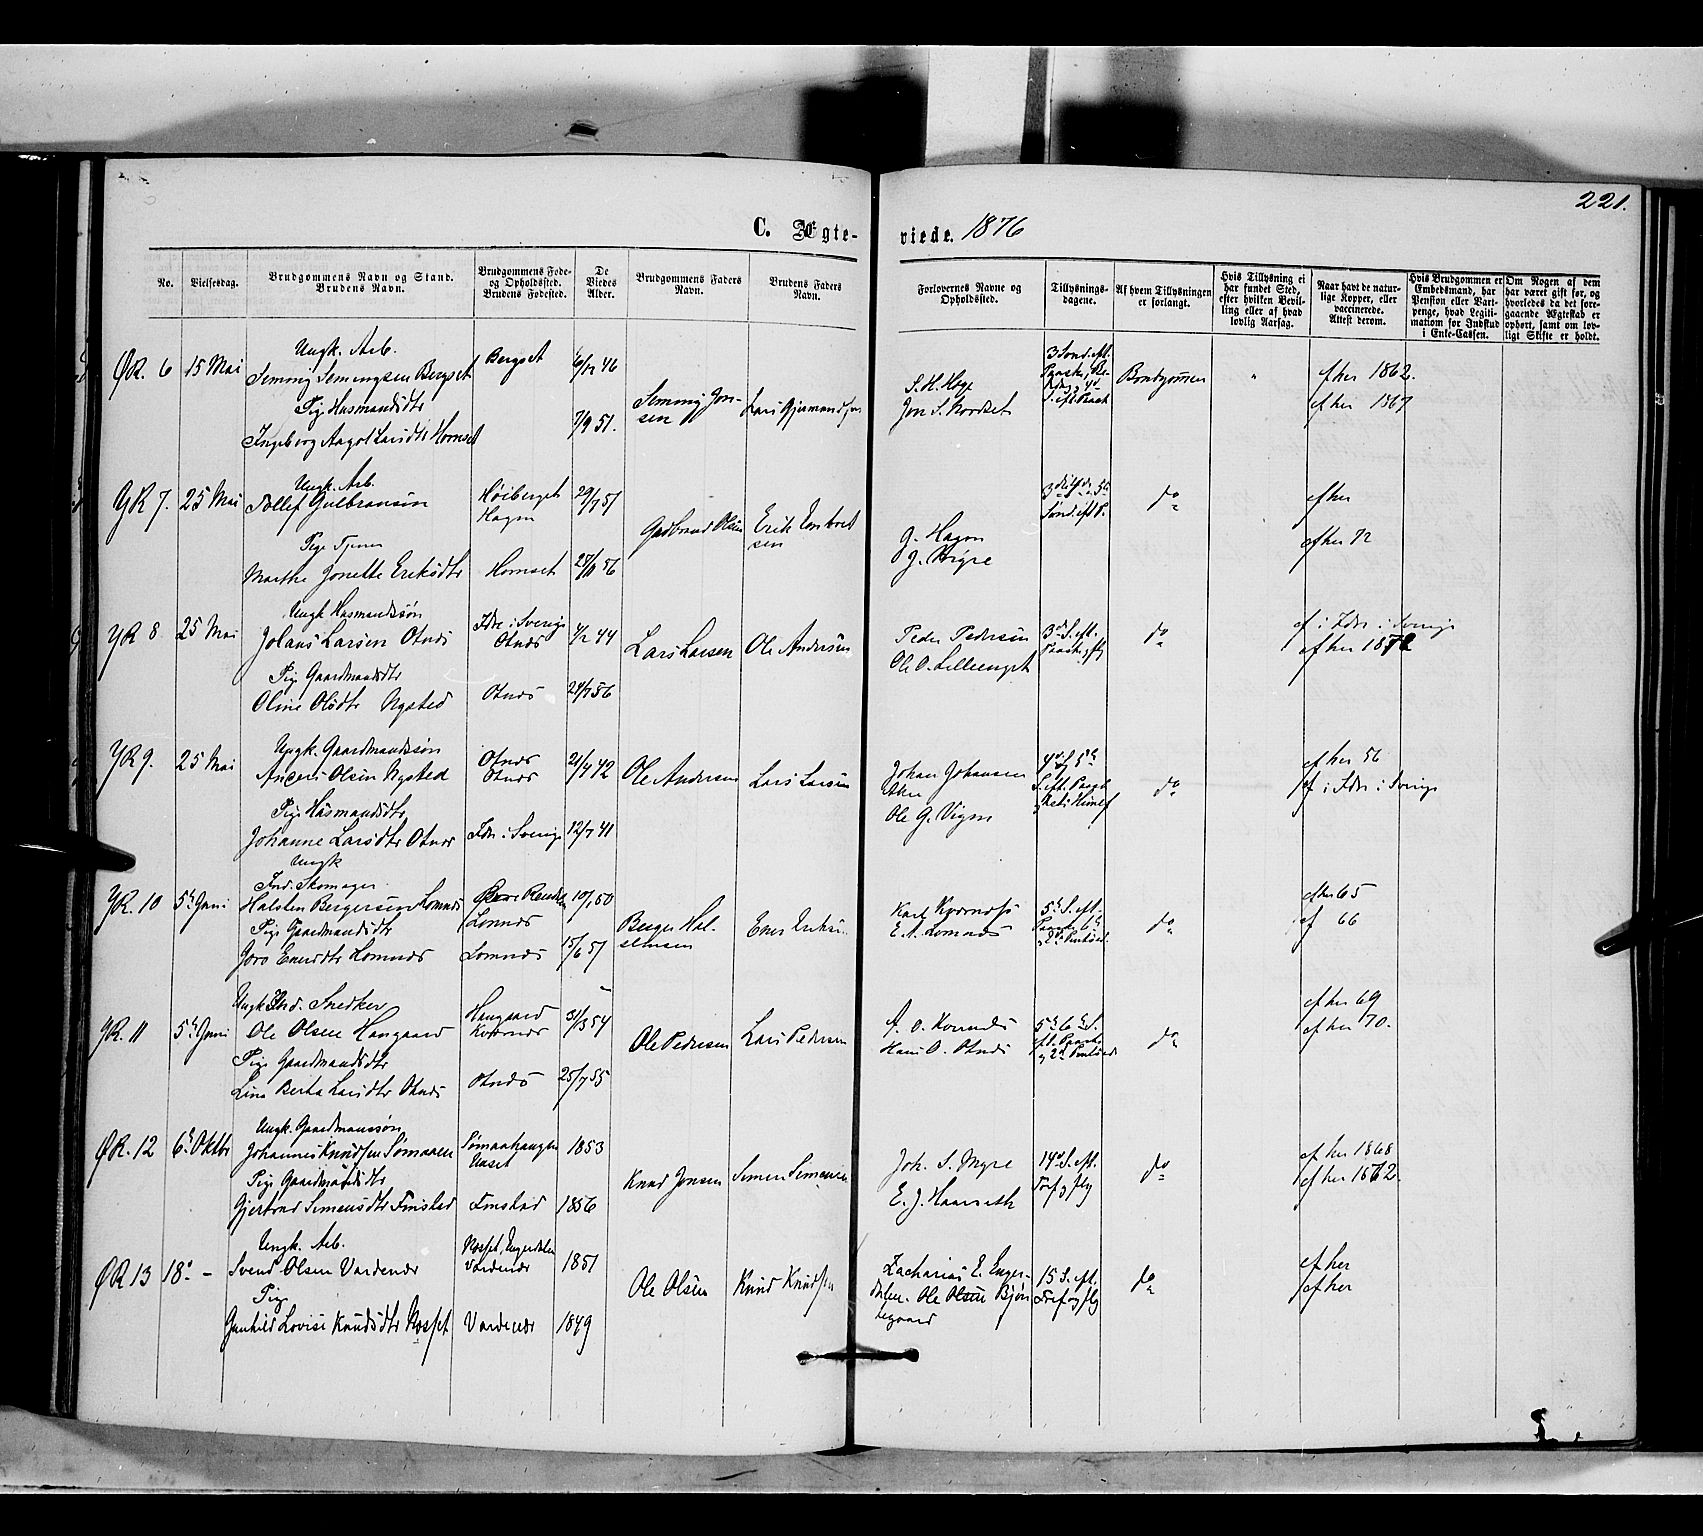 221.
C. Ægte-
viede. 1876
No.
Vielsesdag.
Brudgommens Navn og Stand.
Brudens Navn.
Brudgommens Føde-
og Opholdssted.
Brudens Fødested.
De
Viedes
Alder.
Brudgommens Faders
Navn.
Brudens Faders
Navn.
Forlovernes Navne og
Opholdssted.
Tillysnings-
dagene.
Af hvem Tillysningen
er forlangt.
Hvis Tillysning ei
har fundet Sted,
efter hvilken Bevil-
ling eller af hvad
lovlig Aarsag.
Naar havt de natur-
lige Kopper, eller
vaccinerede.
Attest derom.
Hvis Brudgommen er
Embedsmand, har
Pension eller Vart-
penge, hvad Legiti-
mation for Indskud
i Enke-Cassen.
Om Nogen af dem
har været gift før, og
hvorledes da det fore-
gaaende Ægteskab er
ophørt, samt om lov-
ligt Skifte er holdt.
ØR. 6 15 Mai
Ungk. Arb.
Semmig Semmingsen Bergset
Pige Husmandsdtr
Ingeborg Aagot Larsdtr Hornset
Bergset
46
7/9 51.
Semmig Jon-
sen
Lars Gjermundsen
S. H. Hoge
Jon S. Nordset
3 Sønd. eft.
Paaske
Brudgommen
efter 1862.
efter 1867
YR 7. 25 Mai
Ungk. Arb.
Tollef Gulbransen
Pige Tjener
Marthe Jonette Eriksdtr
Høiberget
Hagen
Hornset
29/7 51
56
Gudbrand Olsen
Erik Embret
sen
G. Hagen
J. Myre
Sønd. eft P.
do
efter
efter 72
YR 8 25 Mai
Ungk Husmandssøn
Johans Larsen Otnes
Pige Gaardmandsdtr
Oline Olsdtr Nysted
Idre i Sverige
Otnes
Otnes
44
24/7 56
Lars Larsen
Ole Andersen
Peder Pedersen
Ole O. Lilleenget
3 S. eft.
do
ef i Idre i Sverige
efter 1872
YR 9. 25 Mai
Ungk. Gaardmandssøn
Anders Olsen Nysted
Pige Husmandsdtr
Johanne Larsdtr Otnes
Otnes
Otnes
Idre i Sverige
21/7 42
12/7 41
Ole Andersen
Lars Larsen
Johan Johansen
Aken
Ole G. Vigen
S. eft. Paask
do
efter 56
ef i Idre i Sverige
YR. 10 5te Juni
Ungk
Ind. Skomager
Halsten Bergersen Lomnes
Pige Gaardmandsdtr
Goro Enersdtr Lomnes
Øvre Rendalen
Lomnes
Lomnes
10/1 50
15/6 51
Berger Hal-
stensen
Ener Eriksen
Karl Kvernesø
E. A. Lomnes
5te S. eft.
do
efter 65
ef 66
YR. 11 5te Juni
Ungk Ind. Snedker
Ole Olsen Haugaard
Pige Gaardmandsdtr
Lina Berta Larsdtr Otnes
Haugaard
Kvernes
Otnes
31/3 54
25/7 55
Ole Pedersen
Lars Pedersen
A. O. Kvernes
Hans O. Otnes
5te 6te S.
eft. Paaske
do
efter 69
efter 70.
ØR. 12 6te Oktbr
Ungk. Gaardmanssøn
Johannes Knudsen Sømaaen
Pige Gaardmandsdtr
Gjertrud Simensdtr Finstad
Sømaahaugen
Unset
Finstad
1853
1856
Knud Jonsen
Simen Simensen
Joh. S. Myre
E. J. Haarseth
14de S. eft.
Tref og flg
do
efter 1868
efter 1862.
ØR 13 18de -
Ungk. Arb.
Svend Olsen Vardenær
Pige
Gunhild Lovise Knudsdtr Røsset
Røsset, Engerdalen
Vardenær
Vardenær
1851
1849
Ole Olsen
Knud Knudsen
Zacharias E. Enger-
dalen. Ole Olsen Bjør-
negaard
15 S. eft.
Tref og flg
do
efter
efter